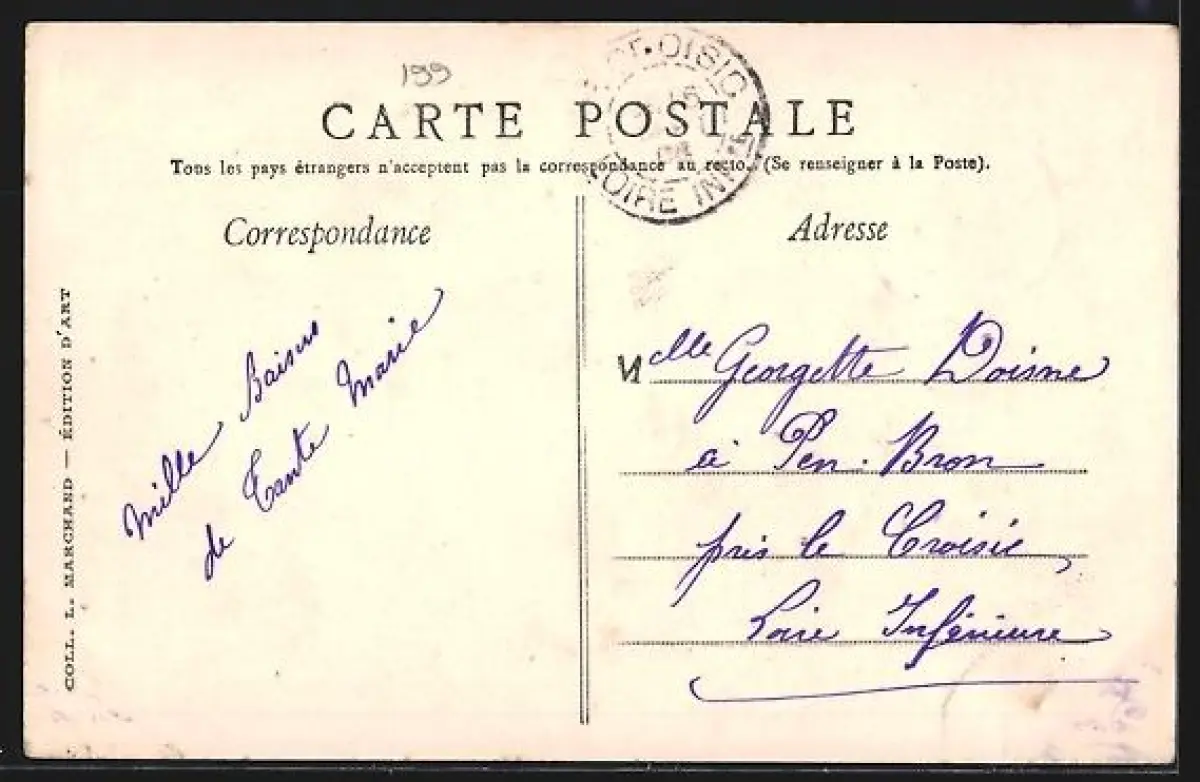 199
CARTE POSTALE
Tous les pays étrangers n'acceptent pas la correspondance au recto. (Se renseigner à la Poste).
Correspondance
Adresse
OISIC
OIRE INF
COLL. L. MARCHAND — ÉDITION D'ART
Mille Baisers
de Tante Marie
Melle Georgette Doisne
à Pen-Bron
près le Croisic
Loire Inférieure